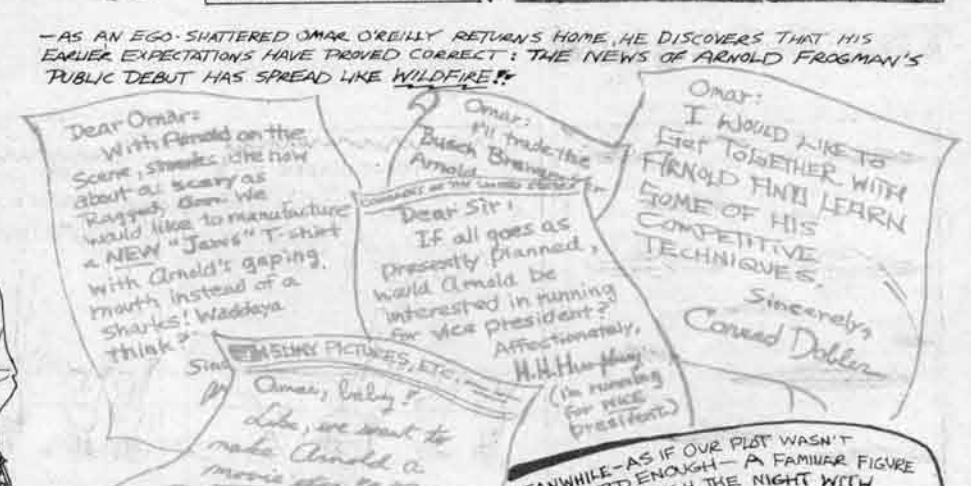 -AS AN EGO-SHATTERED OMAR O'REILLY RETURNS HOME, HE DISCOVERS THAT HIS
EARLIER EXPECTATIONS HAVE PROVED CORRECT: THE NEWS OF ARNOLD FROGMAN'S
PUBLIC DEBUT HAS SPREAD LIKE WILDFIRE!!
Dear Omar:
With Arnold on the
scene, sharks are now
about as scary as
Ragged Ann. We
would like to manufacture
a NEW "Jaws" T-shirt
with Arnold's gaping
mouth instead of a
sharks! Waddaya
think?
Omar:
I'll trade the
Busch
Arnold
OF THE UNITED STATES
Dear Sir:
If all goes as
presently planned,
would Arnold be
interested in running
for vice president?
Affectionately,
H.H. Humphrey
(I'm running
for VICE
president.)
Omar:
I WOULD LIKE TO
GET TOGETHER WITH
ARNOLD AND LEARN
SOME OF HIS
COMPETITIVE
TECHNIQUES.
Sincerely,
Conrad Dobler
PICTURES, ETC.
Omar, baby!
Like, we want to
make Arnold a
movie
-AS IF OUR PLOT WASN'T
ENOUGH- A FAMILIAR FIGURE
THE NIGHT WITH